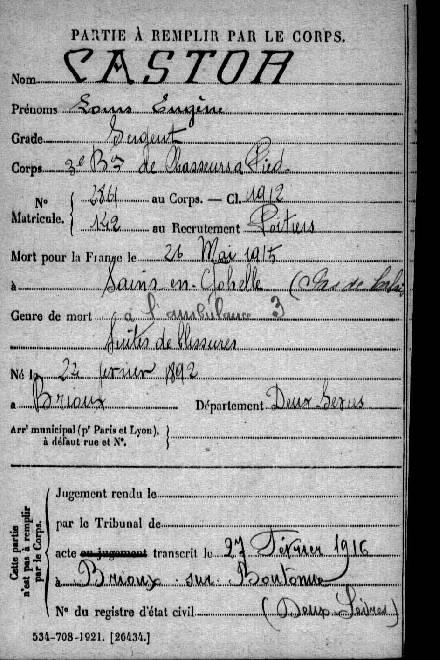 PARTIE À REMPLIR PAR LE CORPS.
Nom CASTOR
Prénoms Louis Eugène
Grade Sergent
Corps 3e Bon de Chasseurs à Pied
N° Matricule. { 2861 au Corps. — Cl. 1912
142 au Recrutement Poitiers
Mort pour la France le 26 Mai 1915
à Sains en Gohelle (Pas de Calais
Genre de mort à l'ambulance 3
suites de blessures
Né le 22 février 1892
à Brioux Département Deux Sèvres
Arrt municipal (pr Paris et Lyon), à défaut rue et N°. }
Cette partie n'est pas à remplir par le Corps.
Jugement rendu le
par le Tribunal de
acte ou jugement transcrit le 27 Février 1916
à Brioux sur Boutonne
N° du registre d'état civil (Deux Sèvres)
534-708-1921. [26434.]